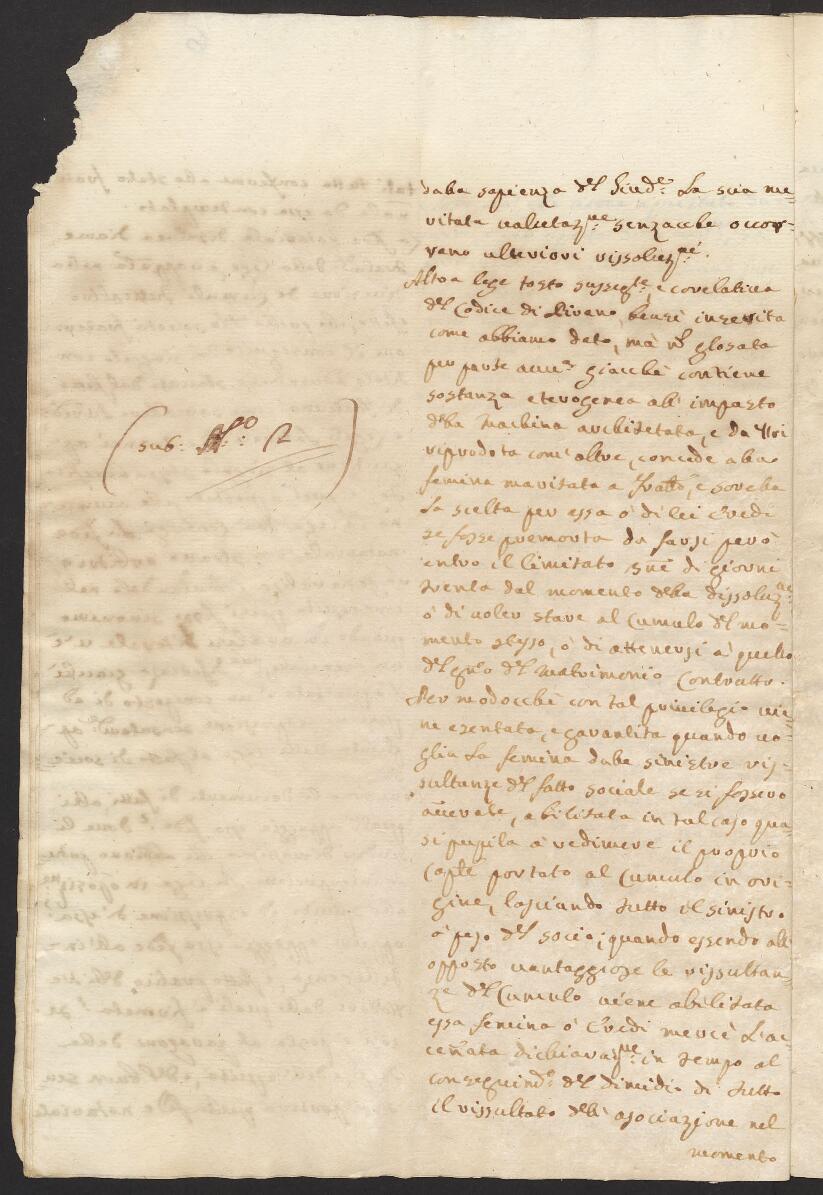 dalla sapienza del Giude La sua me-
ritata valutazne senzacche occor-
rano ulteriori rissoluzni.
Altra lege tosto sussegte, e corelativa
del Codice di Rivano, bensì inserita
come abbiamo dato, mà nō glosata
per parte giacchè contiene
sostanza eterogenea all' impasto
della Machina architetata, e da Noi
riprodota com' altre, concede alla
femina maritata a Fratto, e sorella
La scelta per essa ò di lei Eredi
se fosse premorta da farsi però
entro il limitato di giorni
trenta dal momento della dissoluzne
ò di voler stare al Cumulo del mo-
mento stesso, ò di attenersi à quello
del del Matrimonio Contratto.
Per modocchè con tal privilegio vie-
ne exentata, e garantita quando vo-
glia La femina dalle sinistre ris-
sultanze del fatto sociale se si fossero
averate, abilitata in tal caso qua-
si pupila à redimere il proprio
Caple portato al Cumulo in ori-
gine, lasciando tutto il sinistro
à peso del socio; quando essendo all'
opposto vantaggiose le rissultan-
ze del Cumulo viene abilitata
essa femina ò Eredi mercè L'ac-
cennata dichiarazne in tempo al
conseguimdel dimidio di tutto
il rissultato dell' asociazione nel
momento
(sub: No: 2)